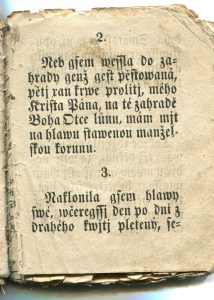 2.
Neb gsem wessla do za-
hrady genž gest pěstowaná,
pětj ran krwe prolitj, mého
Krista Pána, na té zahradě
Boha Otce lůnu, mám mjt
na hlawu stawenou manžel-
skou korunu.
3.
Naklonila gsem hlawy
swé, wčeregssj den po dni z
drahého kwjtj pletený, se-